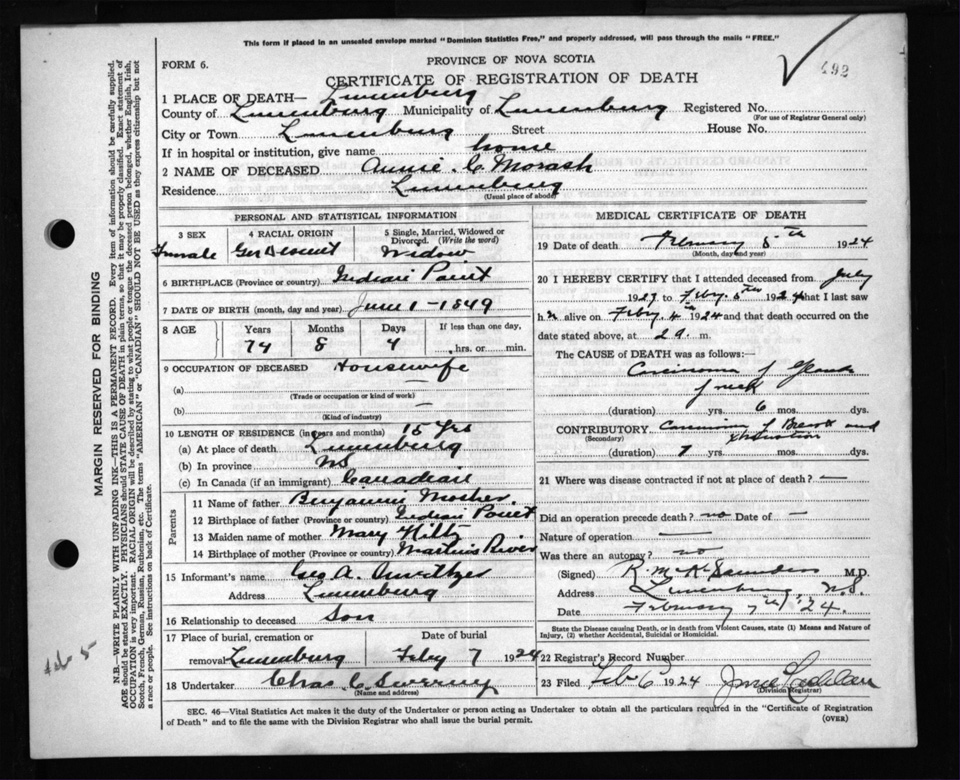 This form if placed in an unsealed envelope marked "Dominion Statistics Free," and properly addressed, will pass through the mails "FREE."
492
FORM 6.
PROVINCE OF NOVA SCOTIA
CERTIFICATE OF REGISTRATION OF DEATH
1 PLACE OF DEATH— Lunenburg
County of Lunenburg Municipality of Lunenburg Registered No.
(For use of Registrar General only)
City or Town Lunenburg Street House No.
If in hospital or institution, give name home
2 NAME OF DECEASED Annie C Morash
Residence Lunenburg
(Usual place of abode)
PERSONAL AND STATISTICAL INFORMATION
3 SEX 4 RACIAL ORIGIN 5 Single, Married, Widowed or Divorced. (Write the word)
Female Ger Descent Widow
6 BIRTHPLACE (Province or country) Indian Point
7 DATE OF BIRTH (month, day and year) June 1 - 1849
8 AGE Years Months Days If less than one day,
74 8 4 hrs. or min.
9 OCCUPATION OF DECEASED Housewife
(a) —
(Trade or occupation or kind of work)
(b) —
(Kind of industry)
10 LENGTH OF RESIDENCE (in years and months) 15 Yrs
(a) At place of death Lunenburg
(b) In province NS
(c) In Canada (if an immigrant) Canadian
Parents
11 Name of father Benjamin Mosher
12 Birthplace of father (Province or country) Indian Point
13 Maiden name of mother Mary Hiltz
14 Birthplace of mother (Province or country) Martins River
15 Informant's name Geo A.
Address Lunenburg
16 Relationship to deceased Son
17 Place of burial, cremation or removal Lunenburg Date of burial Feby 7 1924
18 Undertaker Chas C Sweeny
(Name and address)
MEDICAL CERTIFICATE OF DEATH
19 Date of death February 5th 1924
(Month, day and year)
20 I HEREBY CERTIFY that I attended deceased from July
192 to Feby. 5th 1924 that I last saw
h alive on Feby. 4th 1924 and that death occurred on the
date stated above, at 2 a. m.
The CAUSE OF DEATH was as follows:—
Carcinoma of Glands
of neck
(duration) yrs. 6 mos. dys.
CONTRIBUTORY Carcinoma of Breast and
(Secondary) exhaustion
(duration) yrs. mos. dys.
21 Where was disease contracted if not at place of death? —
Did an operation precede death? no Date of —
Nature of operation —
Was there an autopsy? no
(Signed) R. McK Saunders M.D.
Address Lunenburg N.S.
Date February 24.
State the Disease causing Death, or in death from Violent Causes, state (1) Means and Nature of Injury, (2) whether Accidental, Suicidal or Homicidal.
22 Registrar's Record Number
23 Filed Feb 6 1924
(Division Registrar)
SEC. 46—Vital Statistics Act makes it the duty of the Undertaker or person acting as Undertaker to obtain all the particulars required in the "Certificate of Registration
of Death" and to file the same with the Division Registrar who shall issue the burial permit.
(OVER)
MARGIN RESERVED FOR BINDING
N.B.—WRITE PLAINLY WITH UNFADING INK—THIS IS A PERMANENT RECORD. Every item of information should be carefully supplied.
AGE should be stated EXACTLY. PHYSICIANS should STATE CAUSE OF DEATH in plain terms, so that it may be properly classified. Exact statement of
OCCUPATION is very important. RACIAL ORIGIN will be described by stating to what people or tongue the deceased person belonged, whether English, Irish,
Scotch, French, German, Russian, Ruthenian, etc. The terms "AMERICAN" or "CANADIAN" SHOULD NOT BE USED as they express citizenship but not
a race or people. See instructions on back of Certificate.
Feb 5